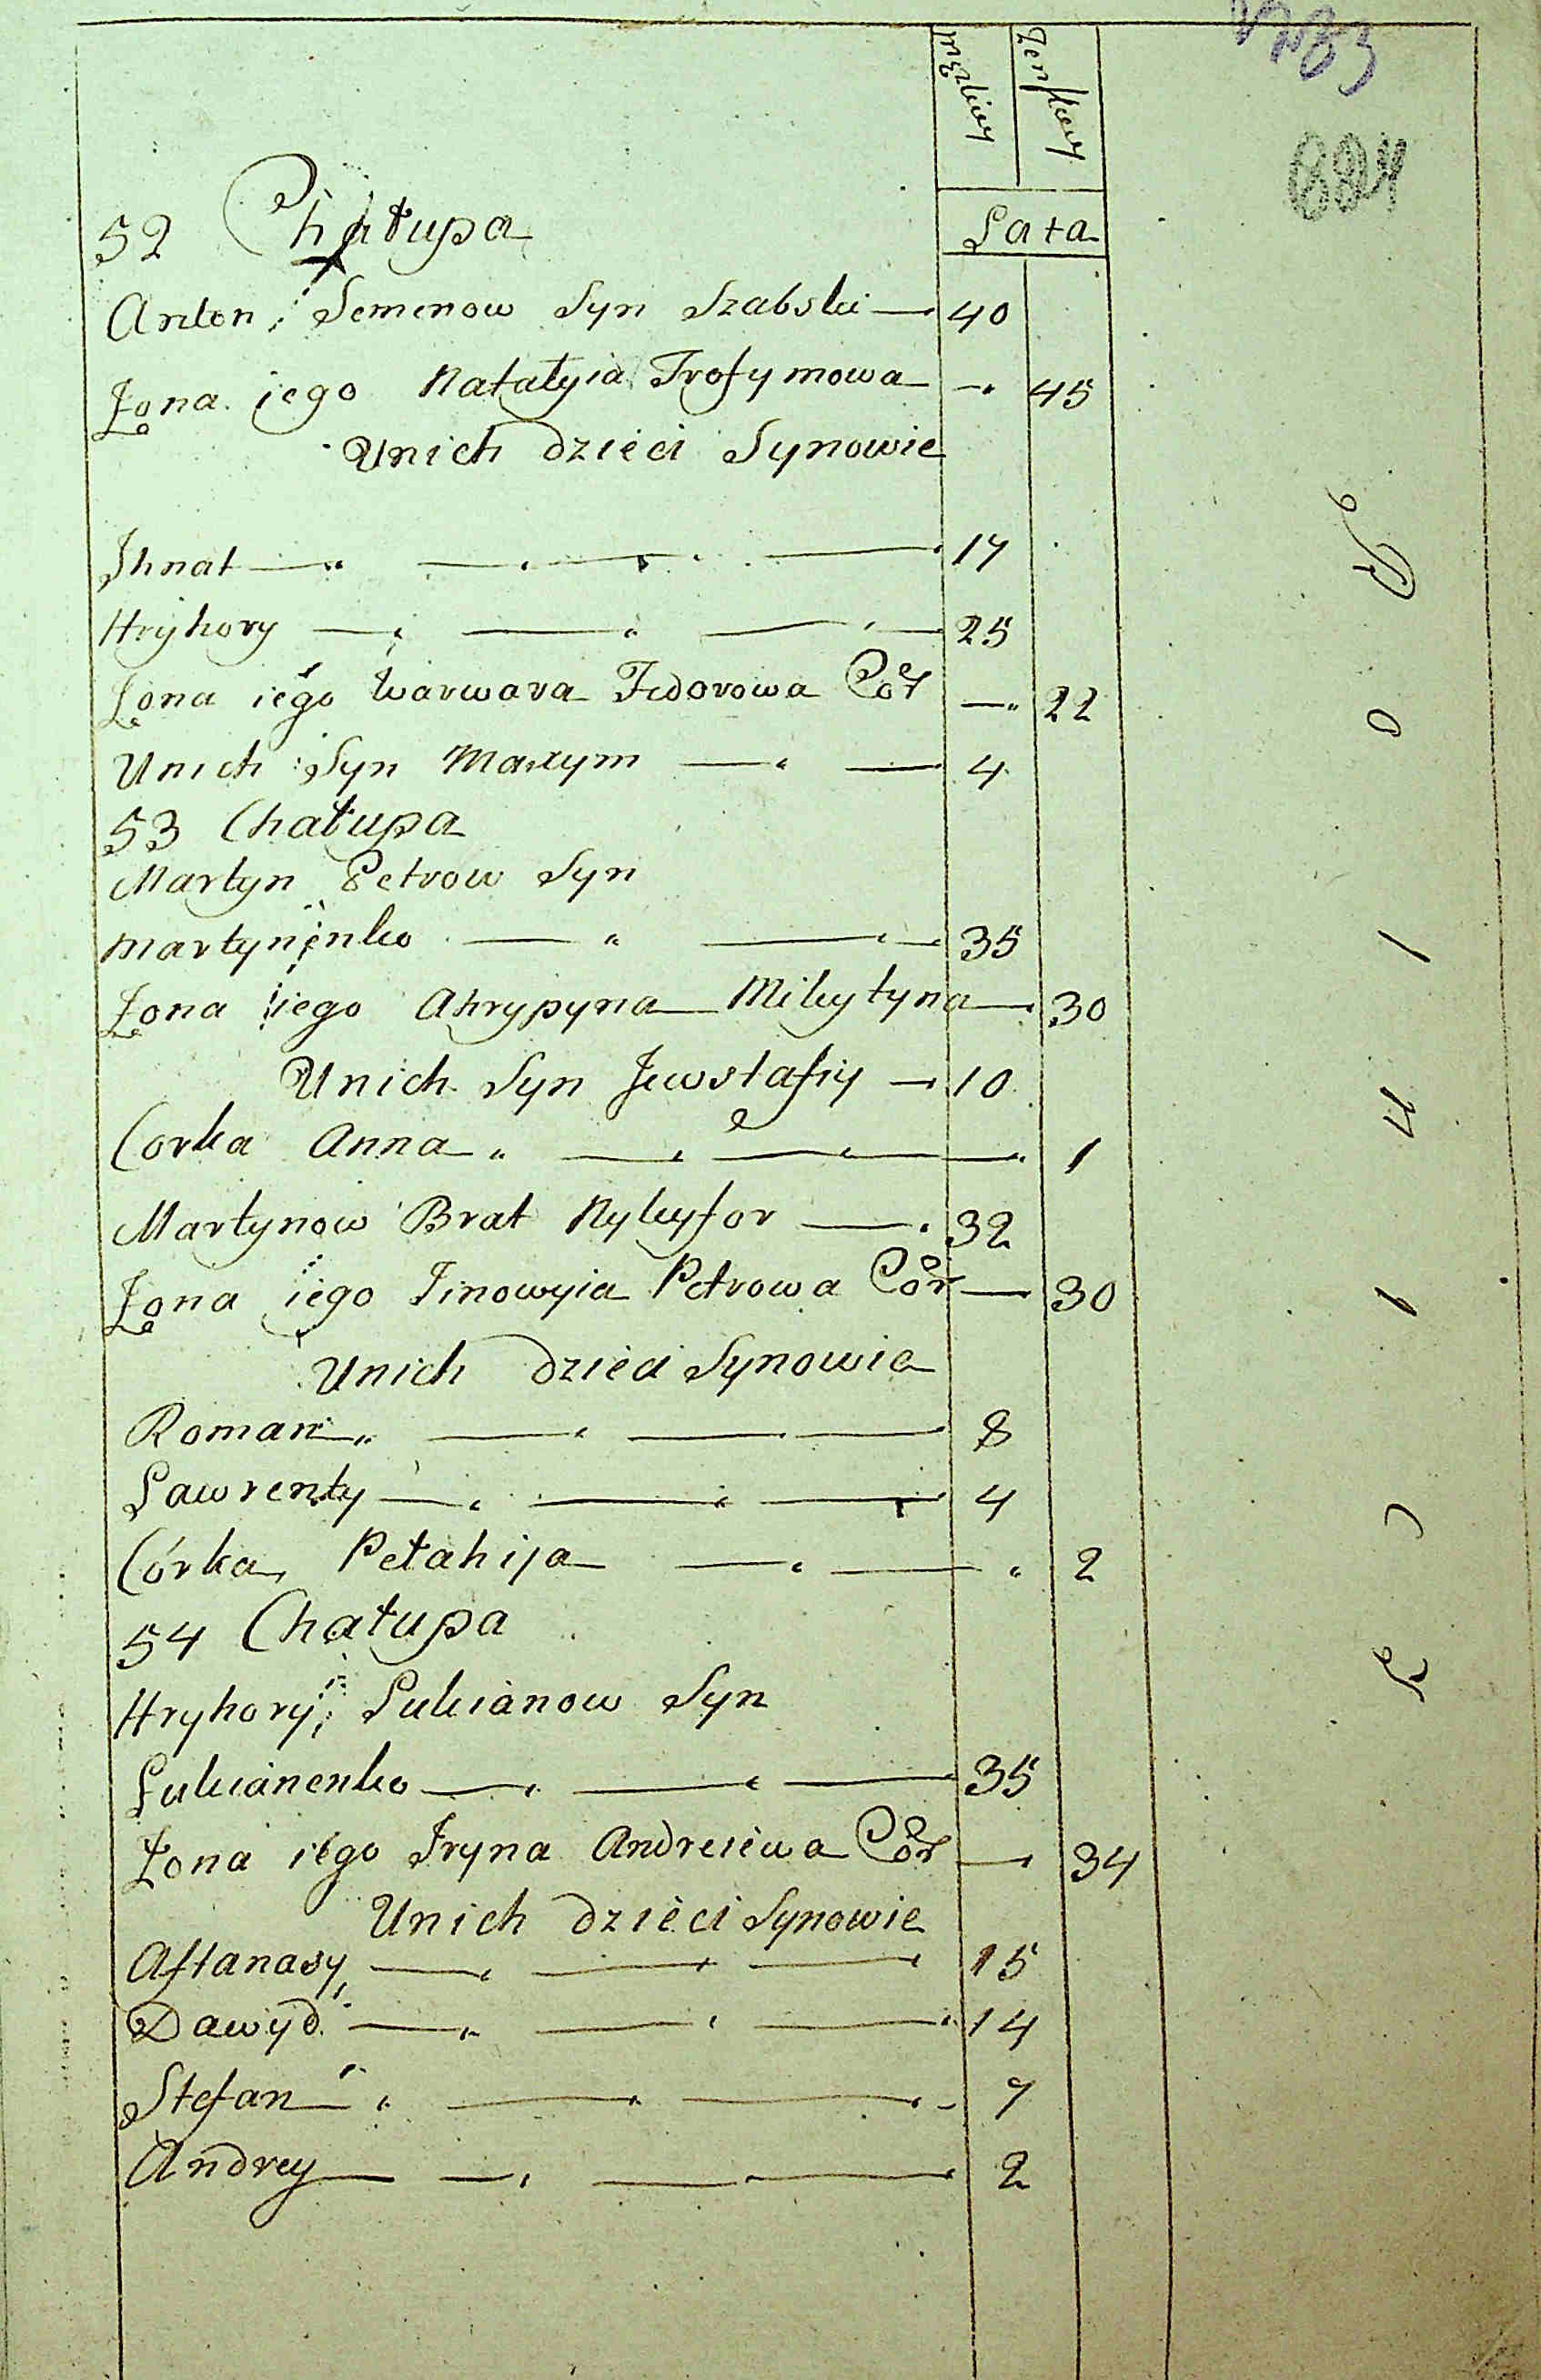 męzkiey żenskiey
Lata
52 Chałupa
Anton Semenow Syn Szabski 40
Żona iego Natałyia Trofymowa 45
Unich dzieci Synowie
Ihnat 17
Hryhory 25
Żona iego Warwara Fedorowa Cór 22
Unich Syn Maxym 4
53 Chałupa
Martyn Petrow Syn
Martynenko 35
Żona iego Ahrypyna Mikytyna 30
Unich Syn Jewstafiy 10
Corka Anna 1
Martynow Brat Nykyfor 32
Żona iego Zinowyia Petrowa Cór 30
Unich dzieci Synowie
Roman 8
Lawrenty 4
Córka Pełahija 2
54 Chałupa
Hryhory Lukianow Syn
Lukianenko 35
Żona iego Iryna Andreiewa Cór 34
Unich dzieci Synowie
Aftanasy 15
Dawyd 14
Stefan 7
Andrey 2